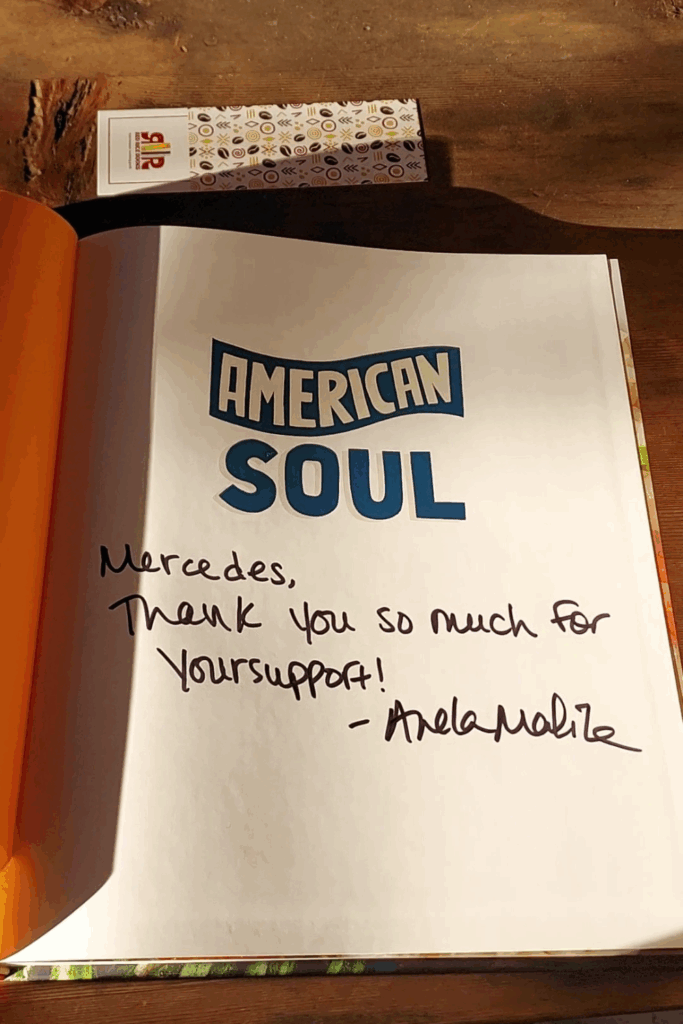 AMERICAN
SOUL
Mercedes,
Thank you so much for
your support!
- Anela Malik